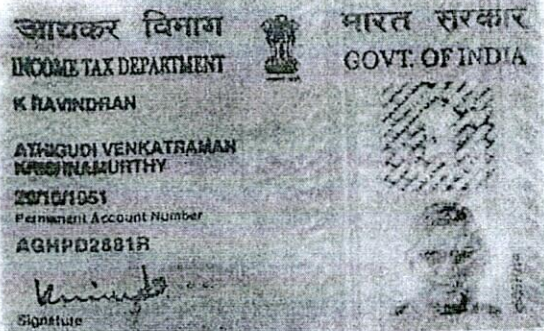 आयकर विभाग
भारत सरकार
INCOME TAX DEPARTMENT
GOVT. OF INDIA
K RAVINDRAN
ATHIGUDI VENKATRAMAN
KRISHNAMURTHY
Permanent Account Number
AGHPD2881R
Signature